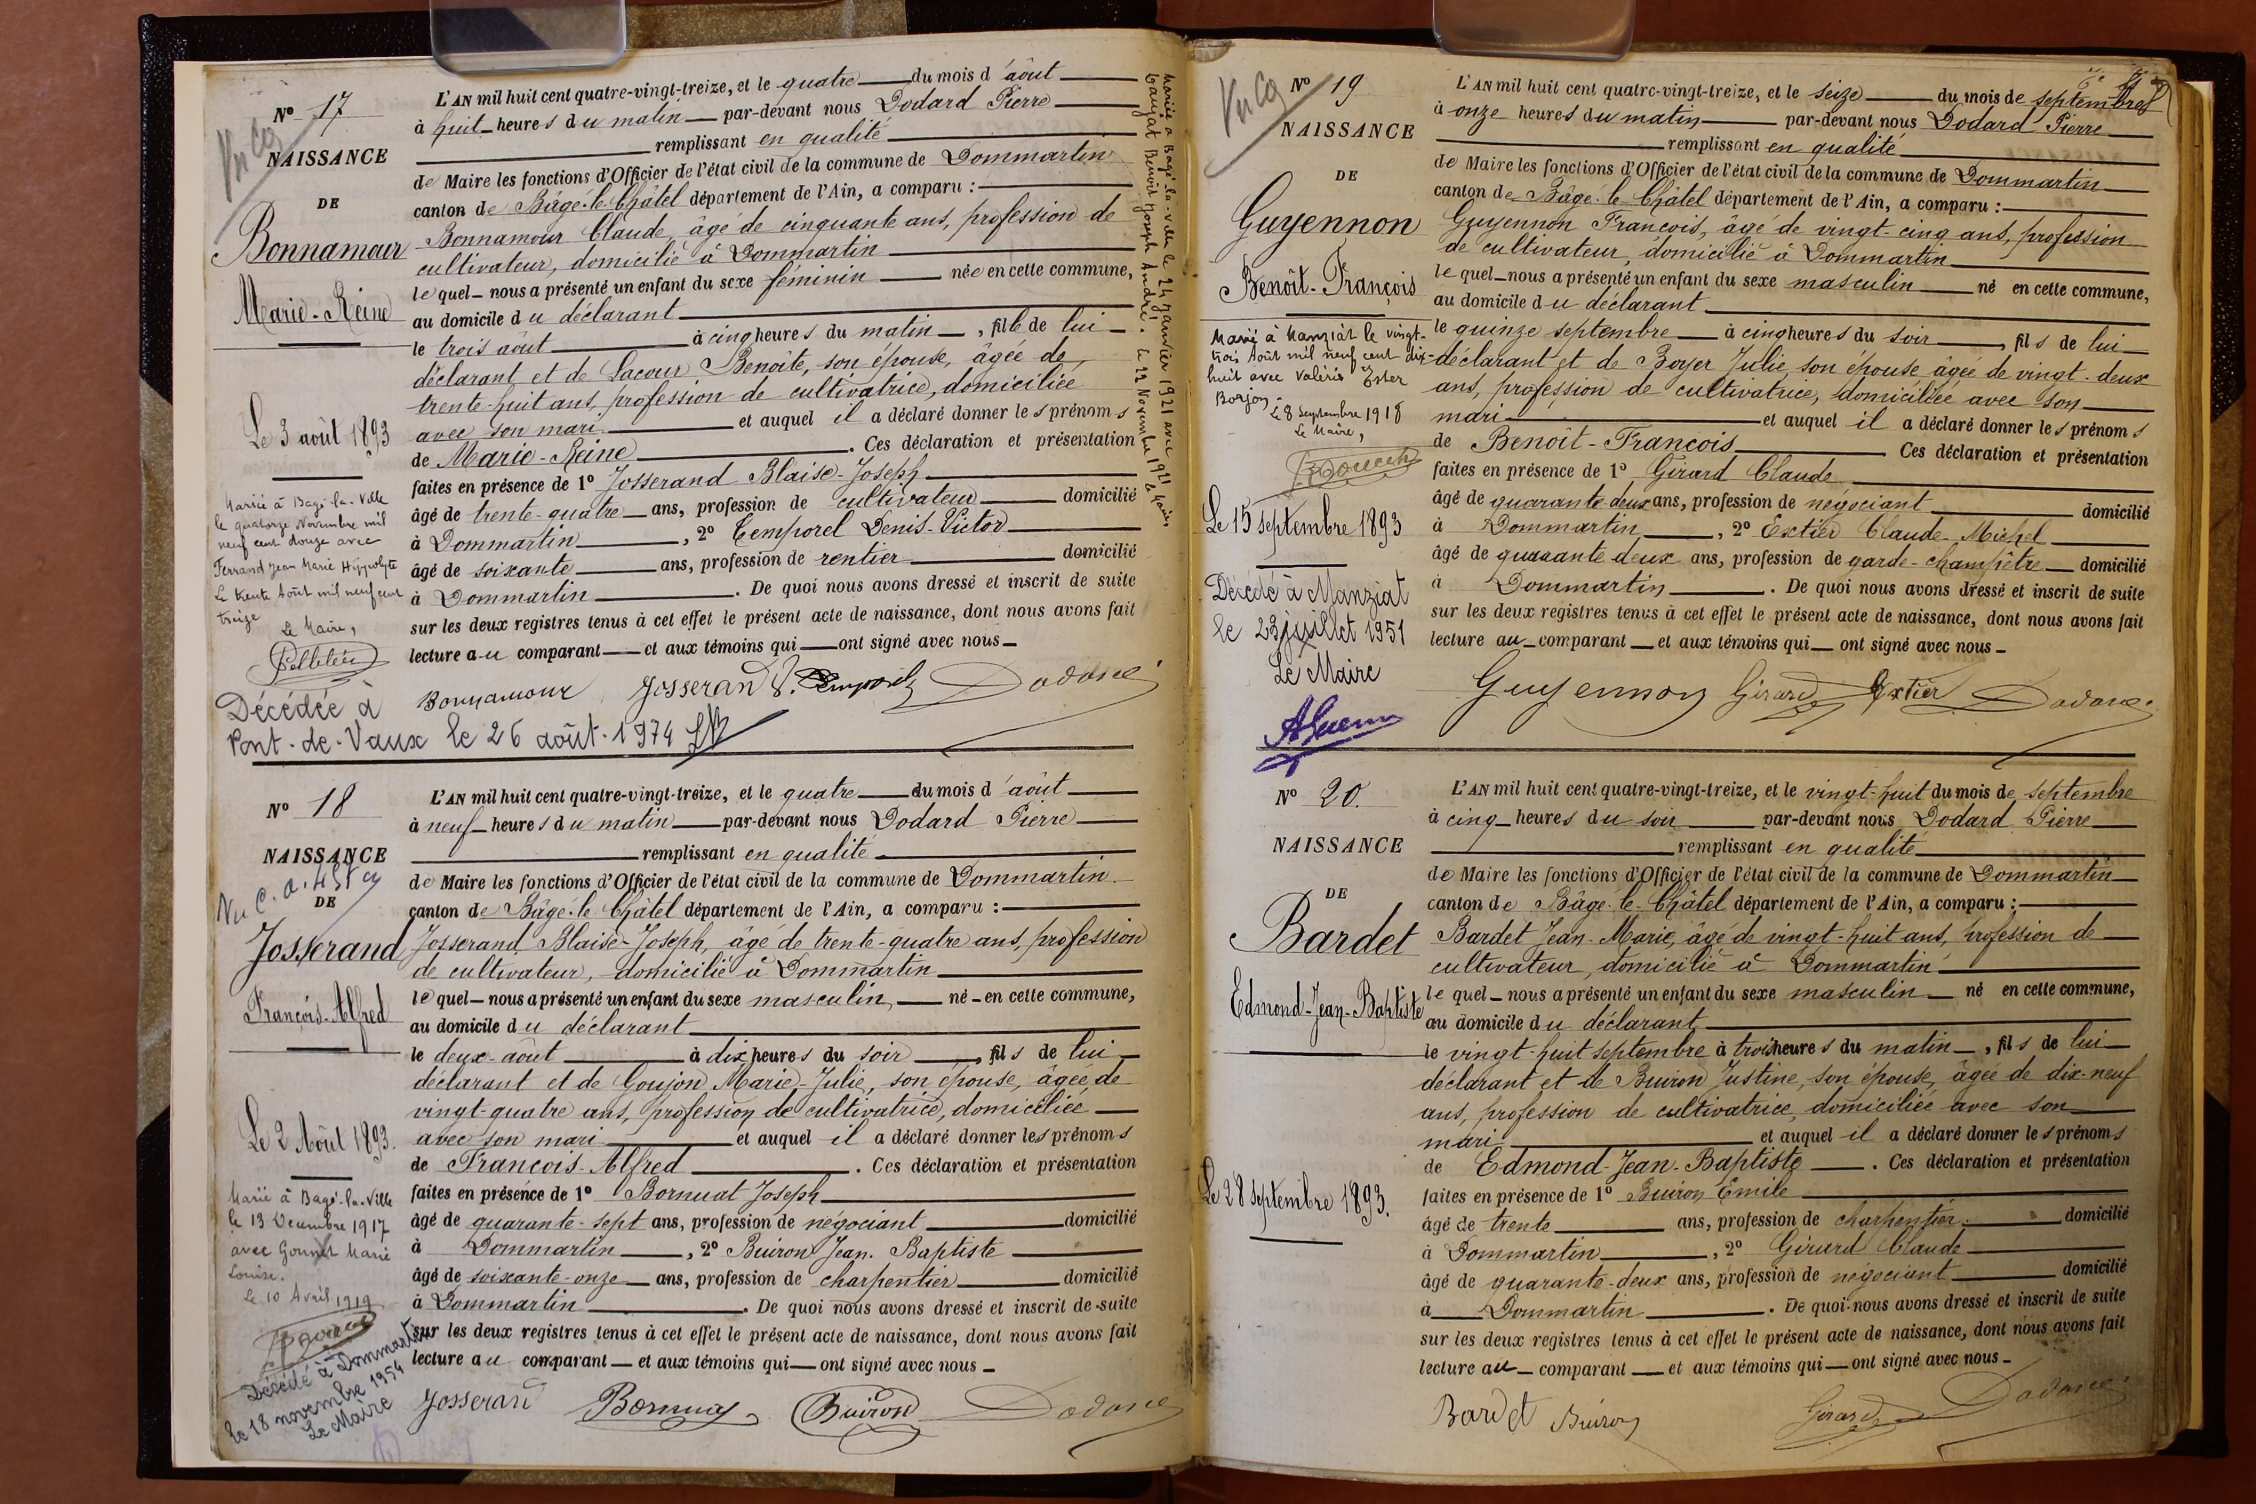 Nº 17
NAISSANCE
DE
Bonnamour
Marie-Reine
Le 3 août 1893
Mariée à Bagé-la-Ville
le quatorze Novembre mil
neuf cent douze avec
Ferrand Jean Marie Hippolyte
Le trente Août mil neuf cent
treize
Le Maire,
Décédée à
Pont-de-Vaux le 26 août 1974
L'AN mil huit cent quatre-vingt-treize, et le quatre du mois d'août
à huit heures du matin par-devant nous Dodard Pierre
remplissant en qualité
de Maire les fonctions d'Officier de l'état civil de la commune de Dommartin
canton de Bâgé-le-Châtel département de l'Ain, a comparu :
Bonnamour Claude, âgé de cinquante ans, profession de
cultivateur, domicilié à Dommartin
lequel nous a présenté un enfant du sexe féminin née en cette commune,
au domicile du déclarant
le trois août à cinq heures du matin, fille de lui
déclarant et de Lacour Benoîte, son épouse, âgée de
trente-huit ans, profession de cultivatrice, domiciliée
avec son mari et auquel il a déclaré donner les prénoms
de Marie-Reine. Ces déclaration et présentation
faites en présence de 1º Josserand Blaise-Joseph
âgé de trente-quatre ans, profession de cultivateur domicilié
à Dommartin, 2º Temporel Denis-Victor
âgé de soixante ans, profession de rentier domicilié
à Dommartin. De quoi nous avons dressé et inscrit de suite
sur les deux registres tenus à cet effet le présent acte de naissance, dont nous avons fait
lecture au comparant et aux témoins qui ont signé avec nous
Bonnamour Josserand Temporel Dodard
Mariée à Bagé-la-Ville le 24 Janvier 1921 avec
Benoit Joseph André. Le 22 Novembre 1921 Le Maire
Nº 18
NAISSANCE
DE
Josserand
François-Alfred
Le 2 Août 1893.
Marié à Bagé-la-Ville
le 13 Décembre 1917
avec Marie
Louise.
Le 10 Avril 1919
Décédé à Dommartin
le 18 novembre 1954
Le Maire
L'AN mil huit cent quatre-vingt-treize, et le quatre du mois d'août
à neuf heures du matin par-devant nous Dodard Pierre
remplissant en qualité
de Maire les fonctions d'Officier de l'état civil de la commune de Dommartin
canton de Bâgé-le-Châtel département de l'Ain, a comparu :
Josserand Blaise-Joseph, âgé de trente-quatre ans, profession
de cultivateur, domicilié à Dommartin
lequel nous a présenté un enfant du sexe masculin, né en cette commune,
au domicile du déclarant
le deux août à dix heures du soir, fils de lui
déclarant et de Goujon Marie-Julie, son épouse, âgée de
vingt-quatre ans, profession de cultivatrice, domiciliée
avec son mari et auquel il a déclaré donner les prénoms
de François-Alfred. Ces déclaration et présentation
faites en présence de 1º Bornuat Joseph
âgé de quarante-sept ans, profession de négociant domicilié
à Dommartin, 2º Buiron Jean-Baptiste
âgé de soixante-onze ans, profession de charpentier domicilié
à Dommartin. De quoi nous avons dressé et inscrit de suite
sur les deux registres tenus à cet effet le présent acte de naissance, dont nous avons fait
lecture au comparant et aux témoins qui ont signé avec nous
Josserand Bornuat Buiron Dodard
Nº 19
NAISSANCE
DE
Guyennon
Benoît-François
Marié à Manziat le vingt-
trois Août mil neuf cent dix-
huit avec Valérie Ester
Borjon.
Le 8 Septembre 1918
Le Maire,
Le 15 septembre 1893
Décédé à Manziat
le 23 juillet 1951
Le Maire
L'AN mil huit cent quatre-vingt-treize, et le seize du mois de septembre
à onze heures du matin par-devant nous Dodard Pierre
remplissant en qualité
de Maire les fonctions d'Officier de l'état civil de la commune de Dommartin
canton de Bâgé-le-Châtel département de l'Ain, a comparu :
Guyennon François, âgé de vingt-cinq ans, profession
de cultivateur, domicilié à Dommartin
lequel nous a présenté un enfant du sexe masculin né en cette commune,
au domicile du déclarant
le quinze septembre à cinq heures du soir, fils de lui
déclarant et de Boyer Julie, son épouse âgée de vingt-deux
ans, profession de cultivatrice, domiciliée avec son
mari et auquel il a déclaré donner les prénoms
de Benoît-François Ces déclaration et présentation
faites en présence de 1º Girard Claude
âgé de quarante deux ans, profession de négociant domicilié
à Dommartin, 2º Extier Claude-Michel
âgé de quarante deux ans, profession de garde-champêtre domicilié
à Dommartin. De quoi nous avons dressé et inscrit de suite
sur les deux registres tenus à cet effet le présent acte de naissance, dont nous avons fait
lecture au comparant et aux témoins qui ont signé avec nous
Guyennon Girard Extier Dodard
Nº 20.
NAISSANCE
DE
Bardet
Edmond-Jean-Baptiste
Le 28 septembre 1893.
L'AN mil huit cent quatre-vingt-treize, et le vingt-huit du mois de septembre
à cinq heures du soir par-devant nous Dodard Pierre
remplissant en qualité
de Maire les fonctions d'Officier de l'état civil de la commune de Dommartin
canton de Bâgé-le-Châtel département de l'Ain, a comparu :
Bardet Jean-Marie, âgé de vingt-huit ans, profession de
cultivateur, domicilié à Dommartin
lequel nous a présenté un enfant du sexe masculin né en cette commune,
au domicile du déclarant
le vingt-huit septembre à trois heures du matin, fils de lui
déclarant et de Buiron Justine, son épouse, âgée de dix-neuf
ans, profession de cultivatrice, domiciliée avec son
mari et auquel il a déclaré donner les prénoms
de Edmond-Jean-Baptiste. Ces déclaration et présentation
faites en présence de 1º Buiron Emile
âgé de trente ans, profession de charpentier domicilié
à Dommartin, 2º Girard Claude
âgé de quarante-deux ans, profession de négociant domicilié
à Dommartin. De quoi nous avons dressé et inscrit de suite
sur les deux registres tenus à cet effet le présent acte de naissance, dont nous avons fait
lecture au comparant et aux témoins qui ont signé avec nous
Bardet Buiron Girard Dodard